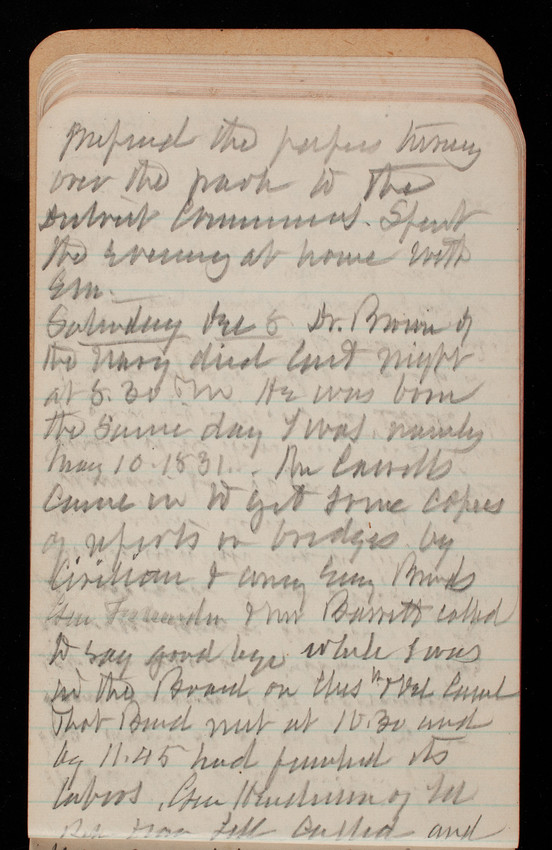 Prepared the papers turning
over the park to the
District Commrs. Spent
the evening at home with
Em.
Saturday Dec 8 Dr. Brown of
the Navy died last night
at 8.30 PM He was born
the same day I was namely
May 10 1831. Mr Carrolls
came in to get some copies
of reports on bridges by
Civilian & army Eng Boards
Gen & Mr Barrett called
to say good bye while I was
in the Board on Ches & Del Canal
That Board met at 10.30 and
by 11.45 had finished its
labors. Gen Henderson of Ill
Rep from Ill called and